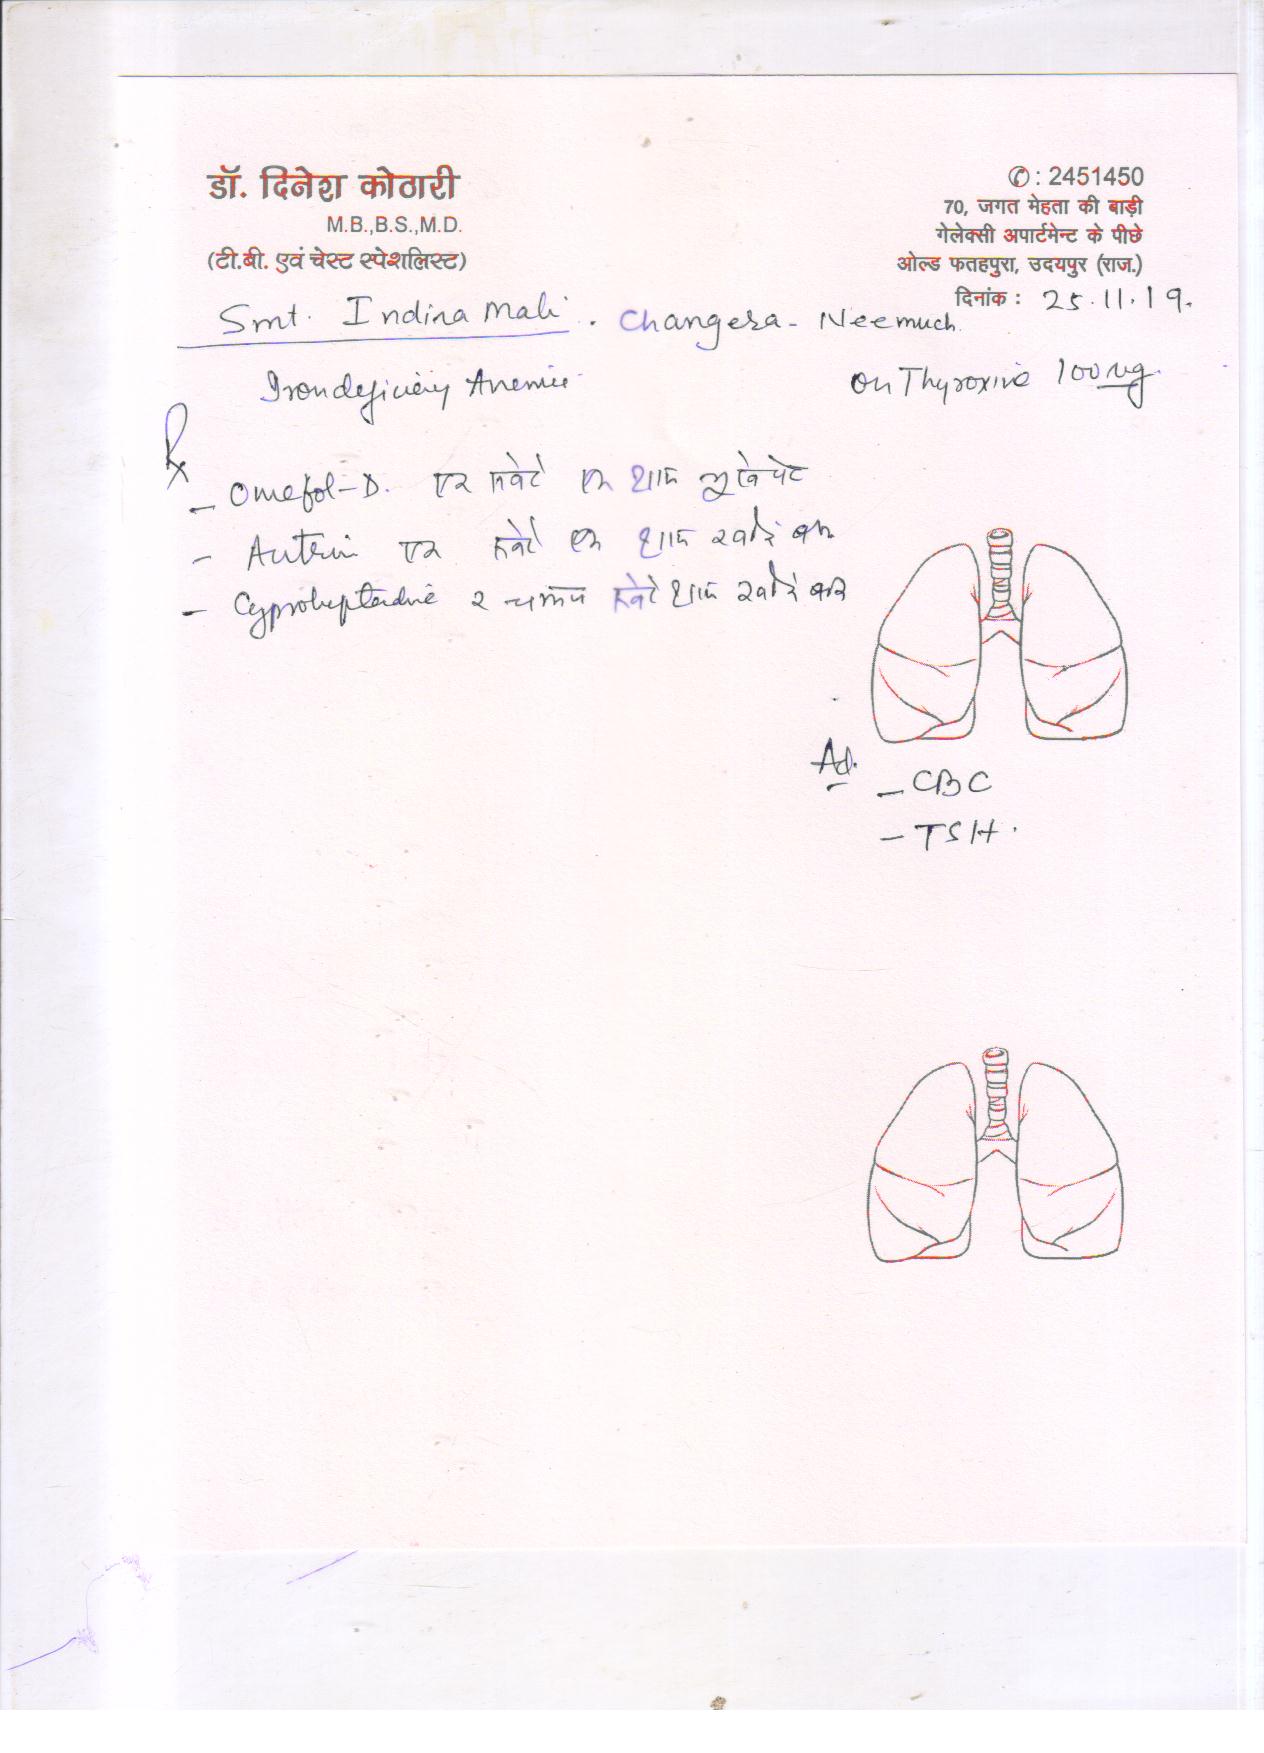 डॉ. दिनेश कोठारी
M.B.,B.S.,M.D.
(टी.बी. एवं चेस्ट स्पेशलिस्ट)
✆ : 2451450
70, जगत मेहता की बाड़ी
गेलेक्सी अपार्टमेन्ट के पीछे
ओल्ड फतहपुरा, उदयपुर (राज.)
दिनांक : 25.11.19.
Smt. Indira Mali . Changera - Neemuch.
Iron deficiency Anemia
On Thyroxine 100 ug.
Rx
- Omefol-D. एक सवेरे एक शाम भूखे पेट
- Autrin एक सवेरे एक शाम खाने के बाद
- Cyproheptadine २ चम्मच सवेरे शाम
Ad.
- CBC
- TSH.